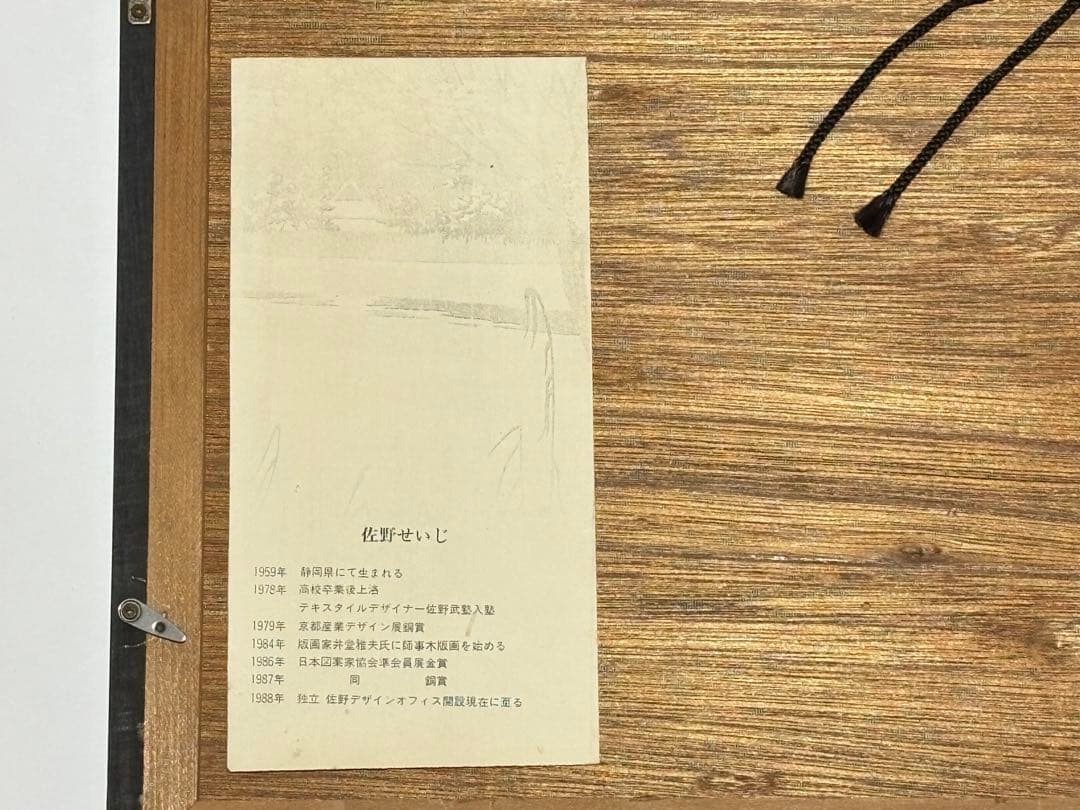 佐野せいじ
1959年 静岡県にて生まれる
1978年 高校卒業後上洛
テキスタイルデザイナー佐野武塾入塾
1979年 京都産業デザイン展銅賞
1984年 版画家井堂雅夫氏に師事木版画を始める
1986年 日本図案家協会準会員展金賞
1987年 同 銅賞
1988年 独立 佐野デザインオフィス開設現在に至る